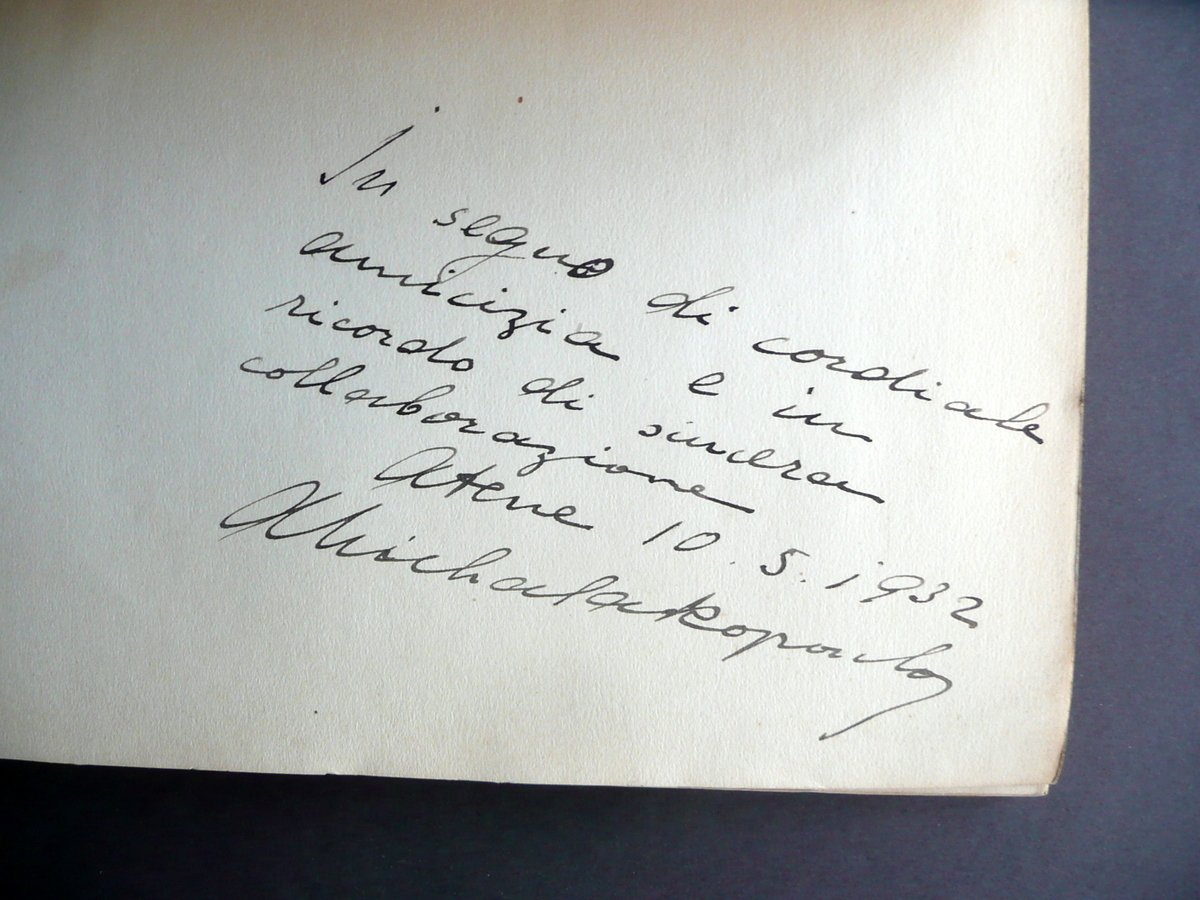 In segno di cordiale
amicizia e in
ricordo di sincera
collaborazione
Atene 10.5.1932
AMichalakopoulos